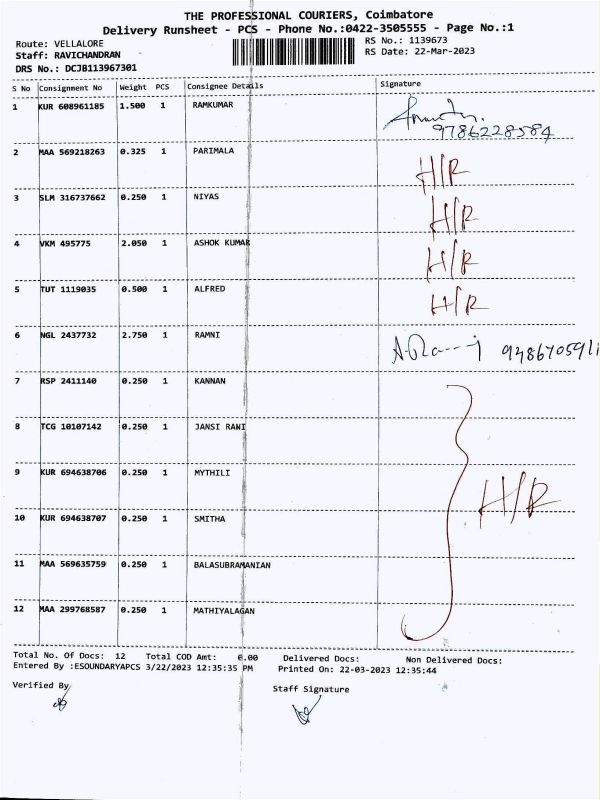 THE PROFESSIONAL COURIERS, Coimbatore
Delivery Runsheet - PCS - Phone No.:0422-3505555 - Page No.:1
Route: VELLALORE
Staff: RAVICHANDRAN
DRS No.: DCJB113967301
RS No.: 1139673
RS Date: 22-Mar-2023
S No Consignment No Weight PCS Consignee Details Signature
1 KUR 608961185 1.500 1 RAMKUMAR
9786228584
2 MAA 569218263 0.325 1 PARIMALA H/R
3 SLM 316737662 0.250 1 NIYAS H/R
4 VKM 495775 2.050 1 ASHOK KUMAR H/R
5 TUT 1119035 0.500 1 ALFRED H/R
6 NGL 2437732 2.750 1 RAMNI 948670591
7 RSP 2411140 0.250 1 KANNAN
8 TCG 10107142 0.250 1 JANSI RANI
9 KUR 694638706 0.250 1 MYTHILI H/R
10 KUR 694638707 0.250 1 SMITHA
11 MAA 569635759 0.250 1 BALASUBRAMANIAN
12 MAA 299768587 0.250 1 MATHIYALAGAN
Total No. Of Docs: 12 Total COD Amt: 0.00 Delivered Docs: Non Delivered Docs:
Entered By :ESOUNDARYAPCS 3/22/2023 12:35:35 PM Printed On: 22-03-2023 12:35:44
Verified By
Staff Signature